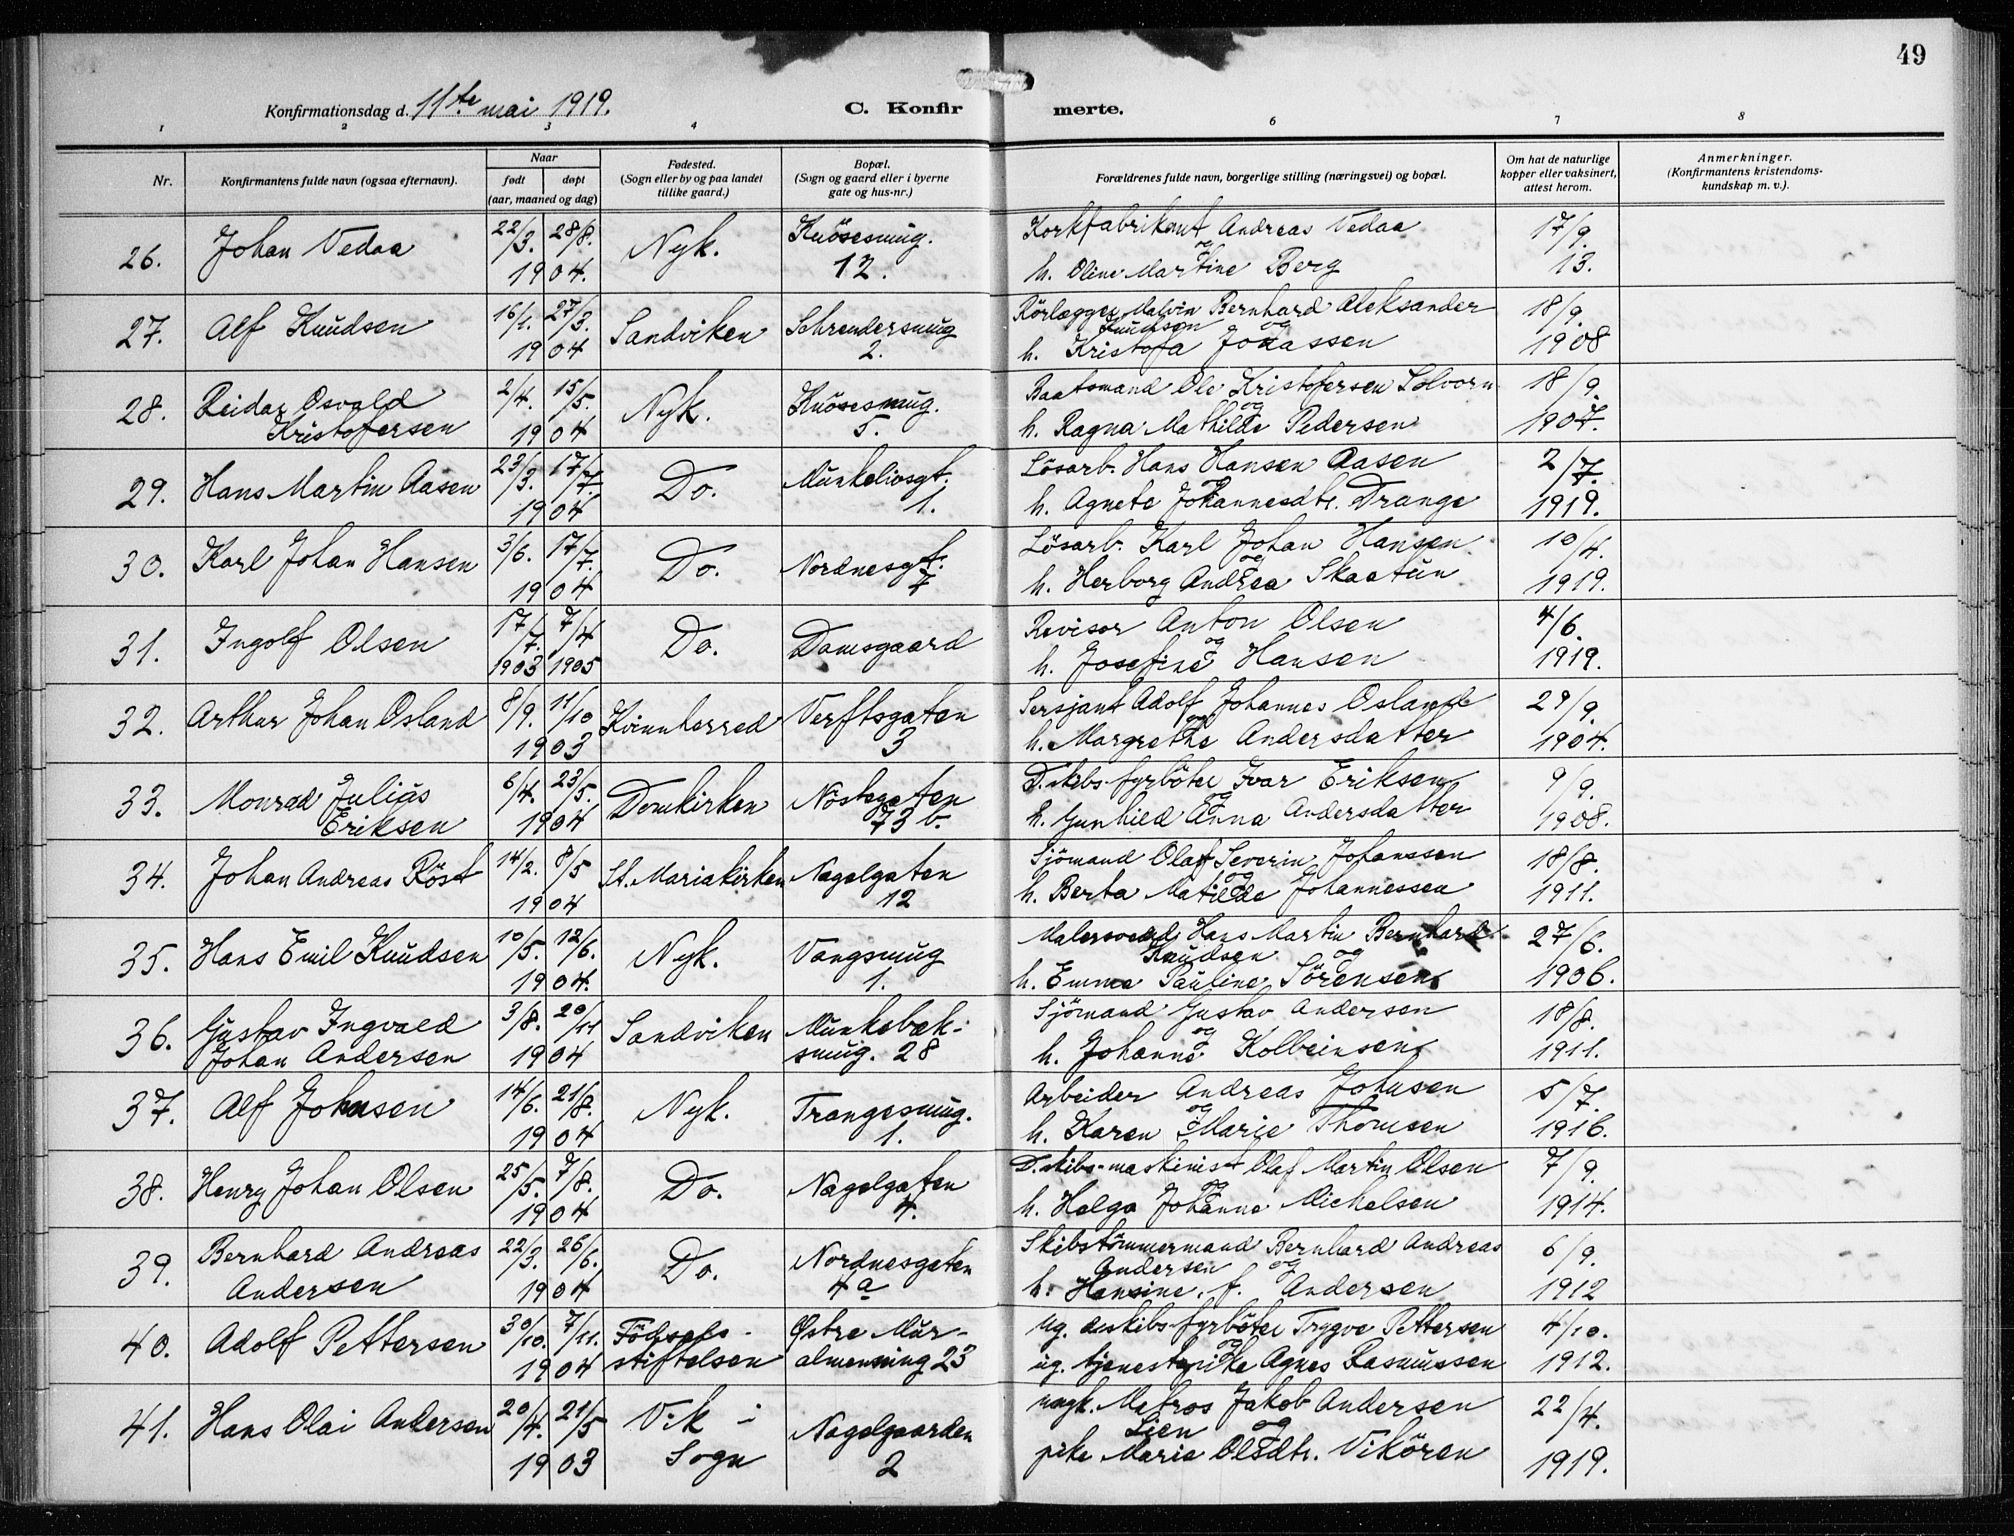 49
Konfirmationsdag d. 11te mai 1919.
C. Konfirmerte.
1 2 3 4 6 7 8
Nr.
Konfirmantens fulde navn (ogsaa efternavn).
Naar
født døpt
(aar, maaned og dag)
Fødested.
(Sogn eller by og paa landet
tillike gaard.)
Bopæl.
(Sogn og gaard eller i byerne
gate og hus-nr.)
Forældrenes fulde navn, borgerlige stilling (næringsvei) og bopæl.
Om hat de naturlige
kopper eller vaksinert,
attest herom.
Anmerkninger.
(Konfirmantens kristendoms-
kundskap m. v.).
26. Johan Vedaa 22/3. 28/8. 1904. Nyk. Knösesmug. 12. Korkfabrikant Andreas Vedaa og
h. Oline Martine Berg 17/9. 13.
27. Alf Knudsen 16/1. 27/3. 1904 Sandviken Schrendersmug 2. Rörlægger Malvin Bernhard Aleksander
Knudsen og
h. Kristofa Jonassen 18/9. 1908
28. Reidar Osvald
Kristofersen 2/4. 15/5. 1904 Nyk. Knösesmug. 5. Baatsmand Ole Kristofersen Solvorn og
h. Ragna Mathilde Pedersen 18/9. 1907.
29. Hans Martin Aasen 23/3. 17/7. 1904 Do. Munkelivsgt. 1. Lösarb. Hans Hansen Aasen og
h. Agnete Johannesdtr. Drange 2/7. 1919.
30. Karl Johan Hansen 3/6. 17/7. 1904 Do. Nordnesgt. 7 Lösarb. Karl Johan Hansen og
h. Herborg Andrea Skaatun 10/4. 1919.
31. Ingolf Olsen 17/7. 1903 7/4 1905 Do. Damsgaard Revisor Anton Olsen og
h. Josefine Hansen 4/6. 1919.
32. Arthur Johan Osland 8/9. 11/10 1903 Kvinnherred Verftsgaten 3 Sersjant Adolf Johannes Osland og
h. Margrethe Andersdatter 29/9. 1904.
33. Monrad Julius
Eriksen 6/4. 23/5. 1904 Domkirken Nöstegaten 73 b. D.skibs-fyrböter Ivar Eriksen og
h. Gunhild Anna Andersdatter 9/9. 1908.
34. Johan Andreas Röst 14/2. 8/5 1904 St. Mariakirken Nagelgaten 12 Sjömand Olaf Severin Johanssen og
h. Berta Matilde Johannessen 18/8. 1911.
35. Hans Emil Knudsen 10/5. 12/6. 1904. Nyk. Vangsmug 1. Malersvend Hans Martin Bernhard
Knudsen og
h. Emma Pauline Sörensen 27/6. 1906.
36. Gustav Ingvald
Johan Andersen 3/8. 20/11 1904 Sandviken Munkebæk-
smug. 28 Sjömand Gustav Andersen og
h. Johanne Kolbeinsen 18/8. 1911.
37. Alf Johnsen 14/6. 21/8. 1904 Nyk. Trangesmug. 1. Arbeider Andreas Johnsen og
h. Karen Marie Thomsen 5/7. 1916.
38. Henry Johan Olsen 25/5. 7/8. 1904 Do. Nagelgaten 4. D.skibs-maskinist Olaf Martin Olsen og
h. Helga Johanne Mickelsen 7/9. 1914.
39. Bernhard Andreas
Andersen 22/3. 26/6. 1904 Do. Nordnesgaten 4a Skibstömmermand Bernhard Andreas
Andersen og
h. Hansine, f. Andersen 6/9. 1912
40. Adolf Pettersen 30/10. 7/11. 1904 Födsels-
stiftelsen Østre Mur-
almenning 23 ug. dskibs-fyrböter Trygve Pettersen og
ug. tjenestepike Agnes Rasmussen 4/10. 1912.
41. Hans Olai Andersen 20/4. 21/5 1903 Vik i
Sogn Nagelgaarden 2 ungk. Matros Jakob Andersen
Lien og
pike Marie Olsdtr. Vikören 22/4. 1919.